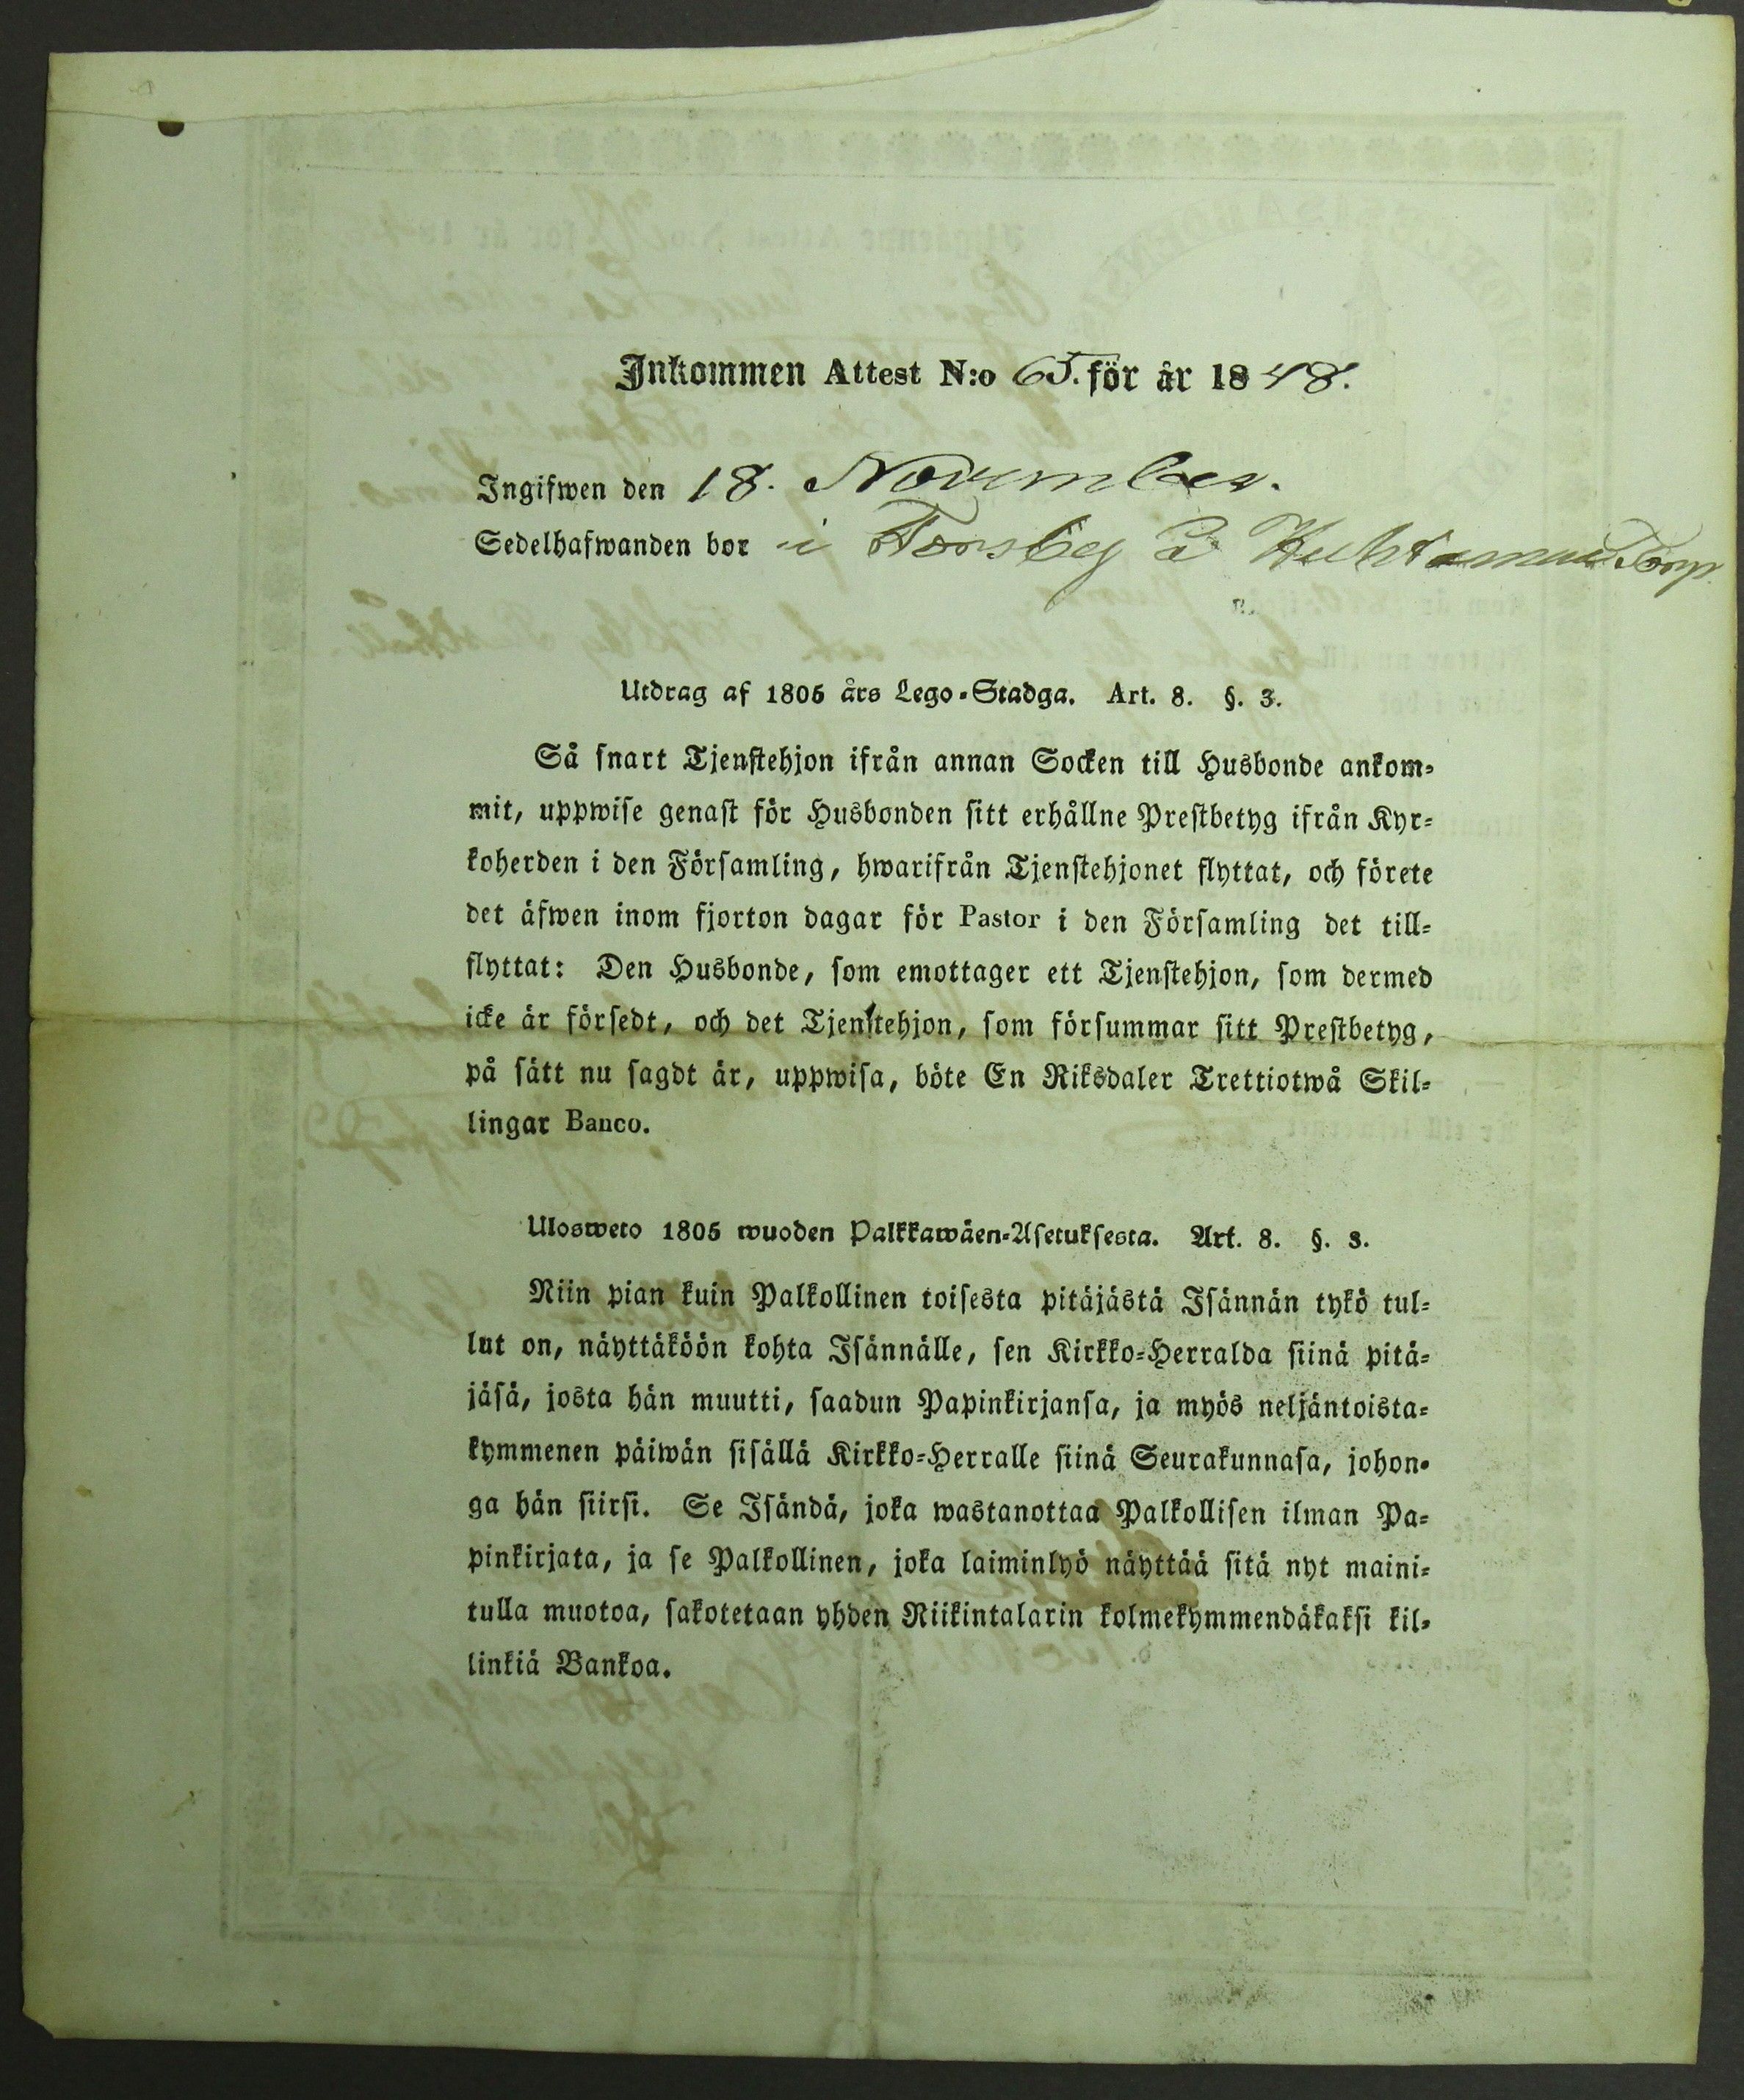 Inkommen Attest N:o 65. för år 1848.
Ingifwen den 18. November.
Sedelhafwanden bor i Forsby å Torp.
Utdrag af 1805 års Lego-Stadga. Art. 8. §. 3.
Så snart Tjenstehjon ifrån annan Socken till Husbonde ankom-
mit, uppwise genast för Husbonden sitt erhållne Prestbetyg ifrån Kyr-
koherden i den Församling, hwarifrån Tjenstehjonet flyttat, och förete
det äfwen inom fjorton dagar för Pastor i den Församling det till-
flyttat: Den Husbonde, som emottager ett Tjenstehjon, som dermed
icke är försedt, och det Tjenstehjon, som försummar sitt Prestbetyg,
på sätt nu sagdt är, uppwisa, böte En Riksdaler Trettiotwå Skil-
lingar Banco.
Ulosweto 1805 wuoden Palkkawäen-Asetuksesta. Art. 8. §. 3.
Niin pian kuin Palkollinen toisesta pitäjästä Isännän tykö tul-
lut on, näyttäköön kohta Isännälle, sen Kirkko-Herralda siinä pitä-
jäsä, josta hän muutti, saadun Papinkirjansa, ja myös neljäntoista-
kymmenen päiwän sisällä Kirkko-Herralle siinä Seurakunnasa, johon-
ga hän siirsi. Se Isändä, joka wastanottaa Palkollisen ilman Pa-
pinkirjata, ja se Palkollinen, joka laiminlyö näyttää sitä nyt maini-
tulla muotoa, sakotetaan yhden Riikintalarin kolmekymmendäkaksi kil-
linkiä Bankoa.